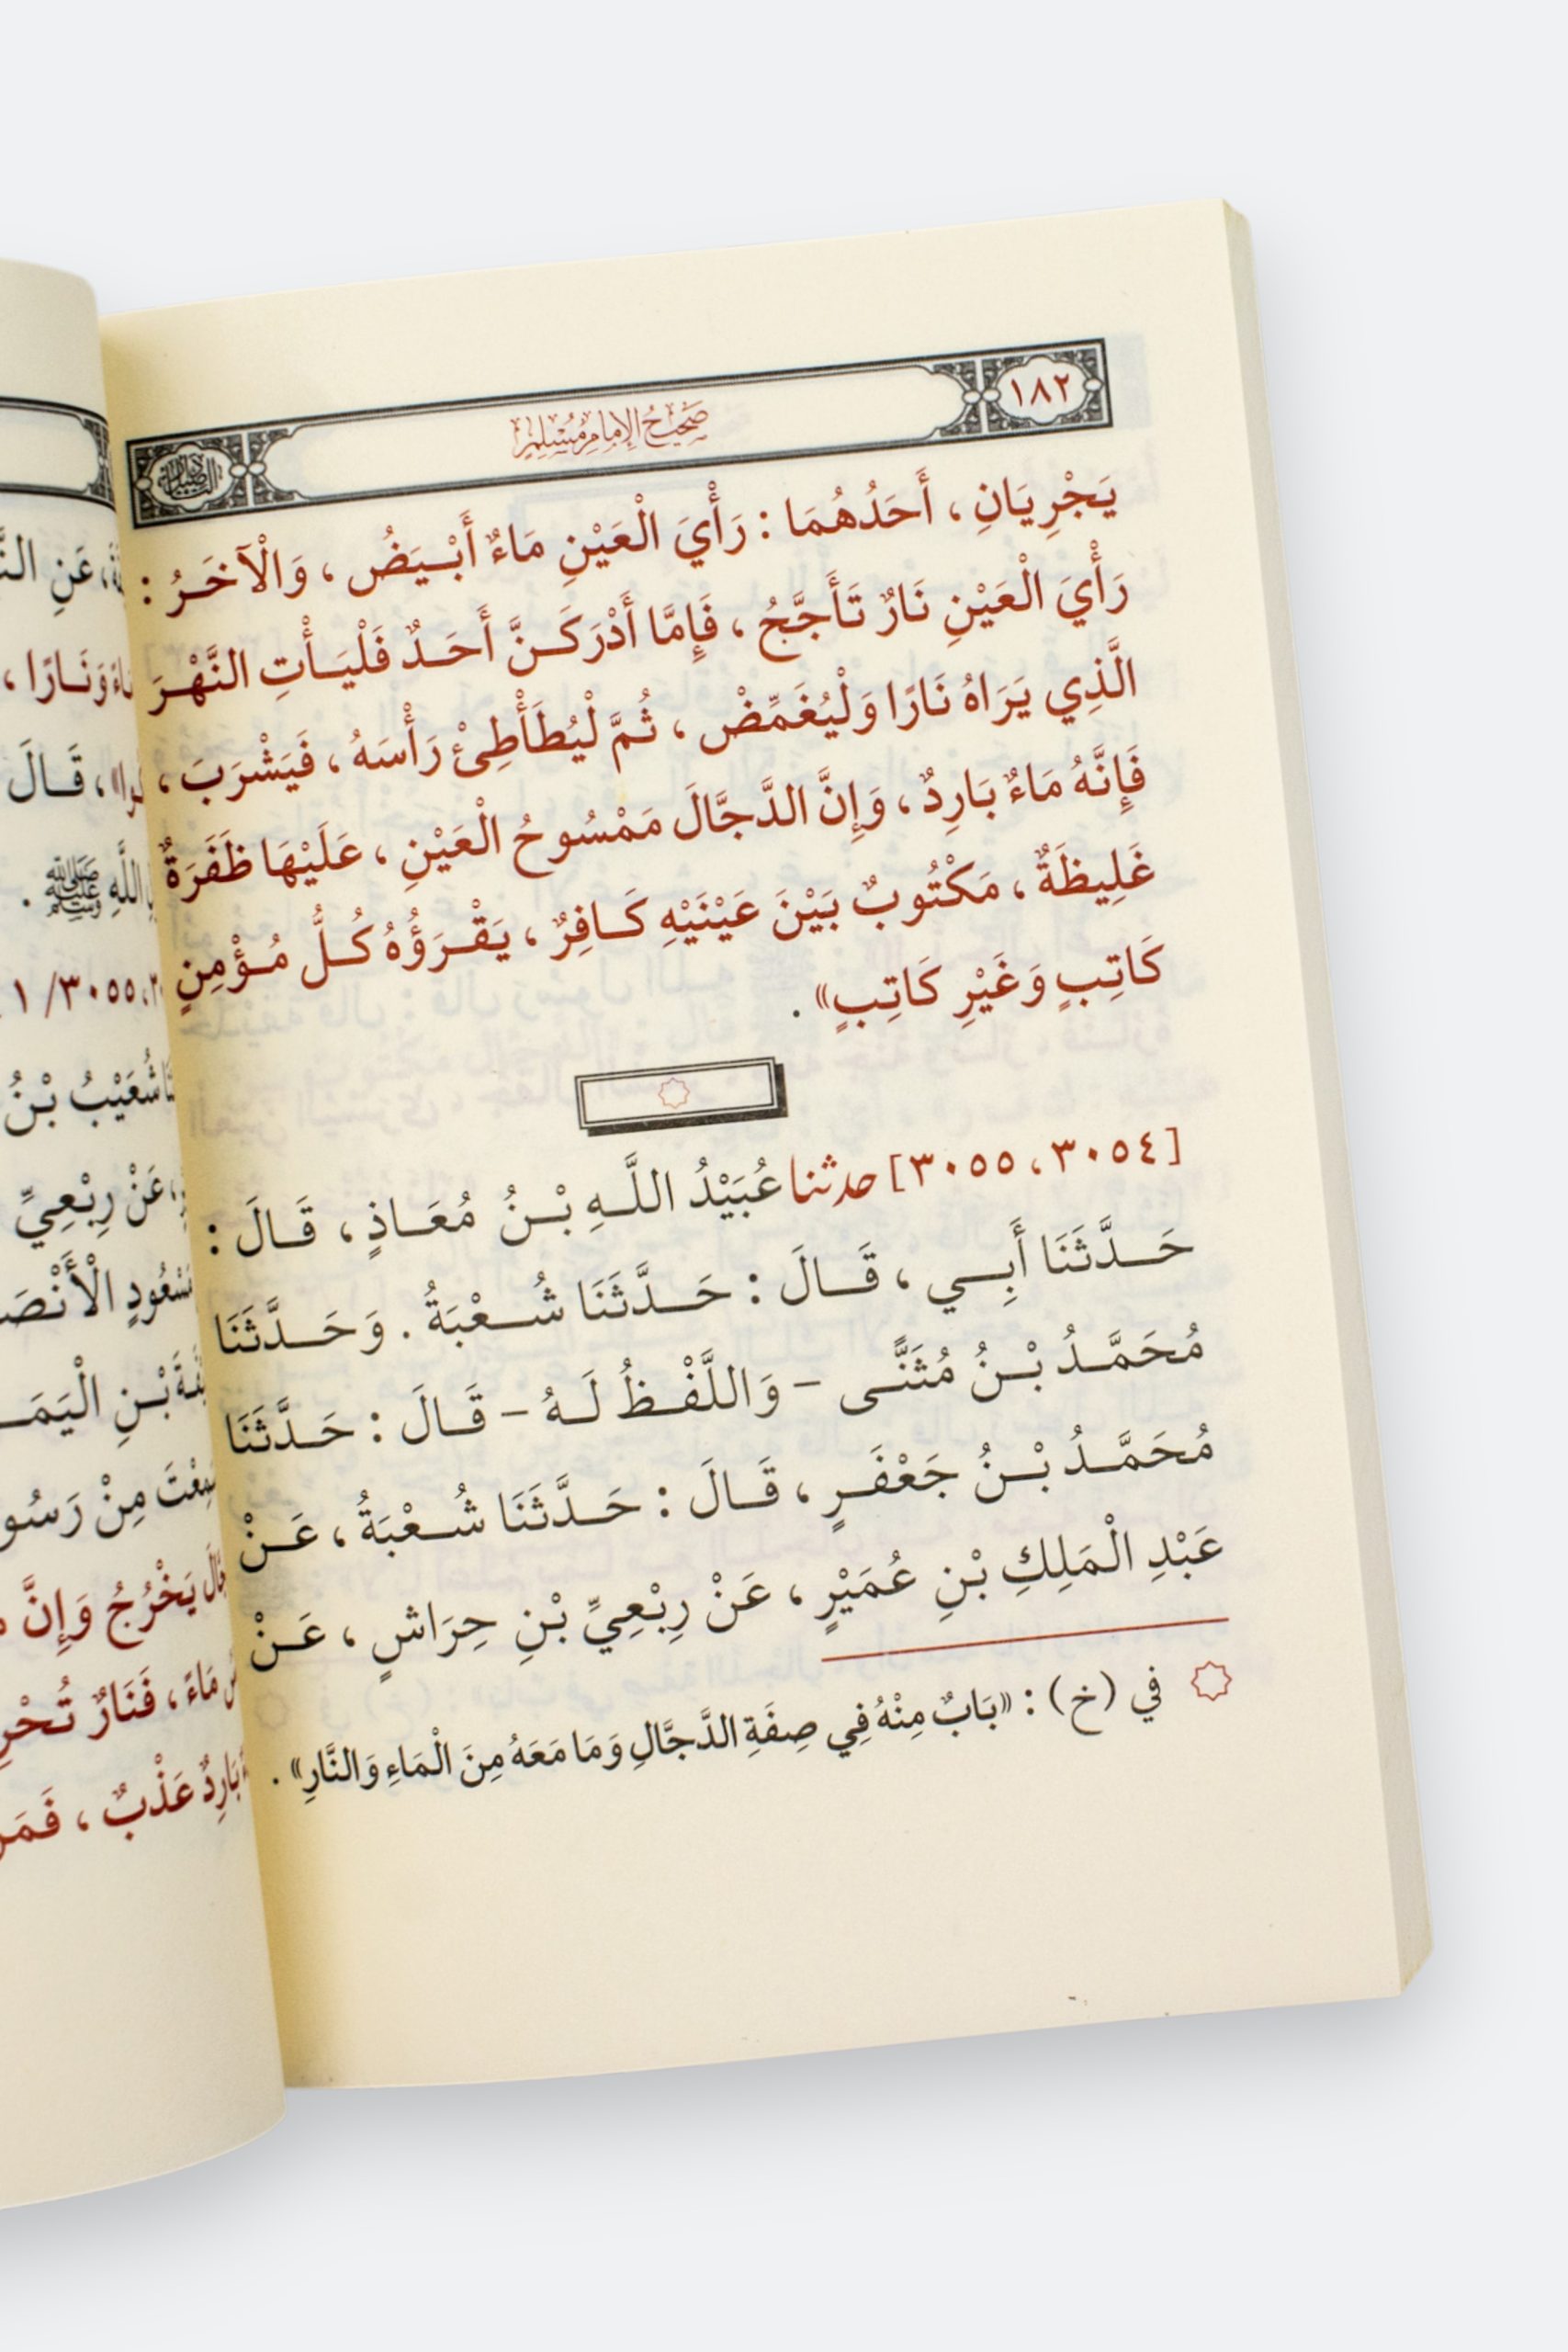 ١٨٢
صَحِيحُ الإِمَامِ مُسْلِمٍ
يَجْرِيَانِ ، أَحَدُهُمَا : رَأْيَ الْعَيْنِ مَاءٌ أَبْيَضُ ، وَالْآخَرُ :
رَأْيَ الْعَيْنِ نَارٌ تَأَجَّجُ ، فَإِمَّا أَدْرَكَنَّ أَحَدٌ فَلْيَأْتِ النَّهْرَ
الَّذِي يَرَاهُ نَارًا وَلْيُغَمِّضْ ، ثُمَّ لْيُطَأْطِئْ رَأْسَهُ ، فَيَشْرَبَ ،
فَإِنَّهُ مَاءٌ بَارِدٌ ، وَإِنَّ الدَّجَّالَ مَمْسُوحُ الْعَيْنِ ، عَلَيْهَا ظَفَرَةٌ
غَلِيظَةٌ ، مَكْتُوبٌ بَيْنَ عَيْنَيْهِ كَافِرٌ ، يَقْرَؤُهُ كُلُّ مُؤْمِنٍ
كَاتِبٍ وَغَيْرِ كَاتِبٍ» .
[٣٠٥٤ ، ٣٠٥٥] حدثنا عُبَيْدُ اللَّهِ بْنُ مُعَاذٍ ، قَالَ :
حَدَّثَنَا أَبِي ، قَالَ : حَدَّثَنَا شُعْبَةُ . وَحَدَّثَنَا
مُحَمَّدُ بْنُ مُثَنَّى - وَاللَّفْظُ لَهُ - قَالَ : حَدَّثَنَا
مُحَمَّدُ بْنُ جَعْفَرٍ ، قَالَ : حَدَّثَنَا شُعْبَةُ ، عَنْ
عَبْدِ الْمَلِكِ بْنِ عُمَيْرٍ ، عَنْ رِبْعِيِّ بْنِ حِرَاشٍ ، عَنْ
في (خ) : «بَابٌ مِنْهُ فِي صِفَةِ الدَّجَّالِ وَمَا مَعَهُ مِنَ الْمَاءِ وَالنَّارِ» .
عَنِ
وَنَارًا ،
، قَالَ
اللَّهِ ﷺ .
٣٠٥٥/ ١
شُعَيْبُ بْنُ
عَنْ رِبْعِيِّ
بْنِ
مِنْ
يَخْرُجُ وَإِنَّ
مَاءً ، فَنَارٌ
بَارِدٌ عَذْبٌ ،